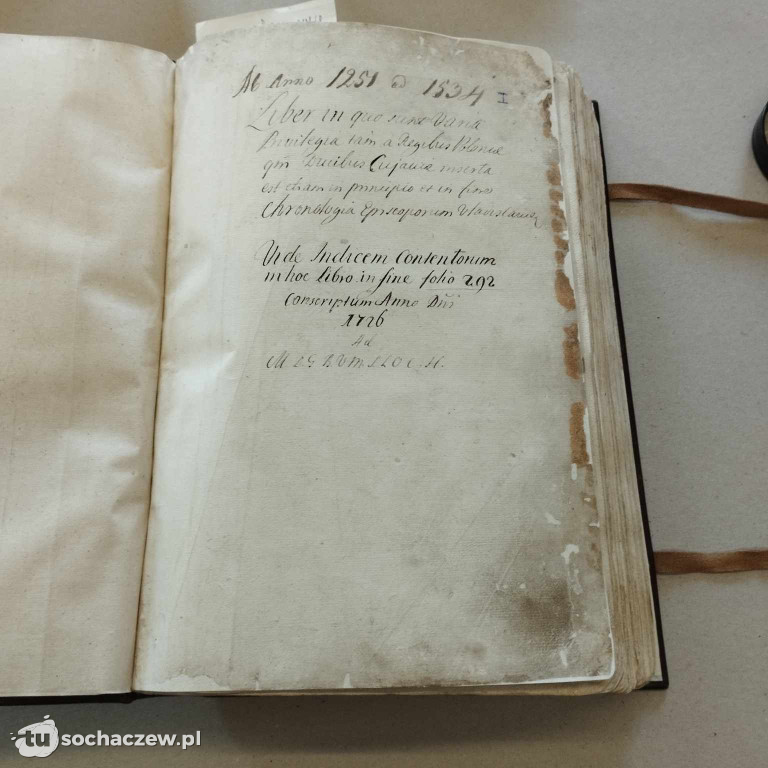 Ab Anno 1251 ad 1534 I
Liber in quo sunt Varia
Privilegia tam a Regibus Poloniæ
qm̃ Ducibus Cujaviæ inserta
est etiam in principio et in fine
Chronologia Episcoporum Vladislavien
Vide Indicem Contentorum
in hoc libro in fine folio 292
Conscriptum Anno Dn̄i
1726
Ad
tu sochaczew.pl